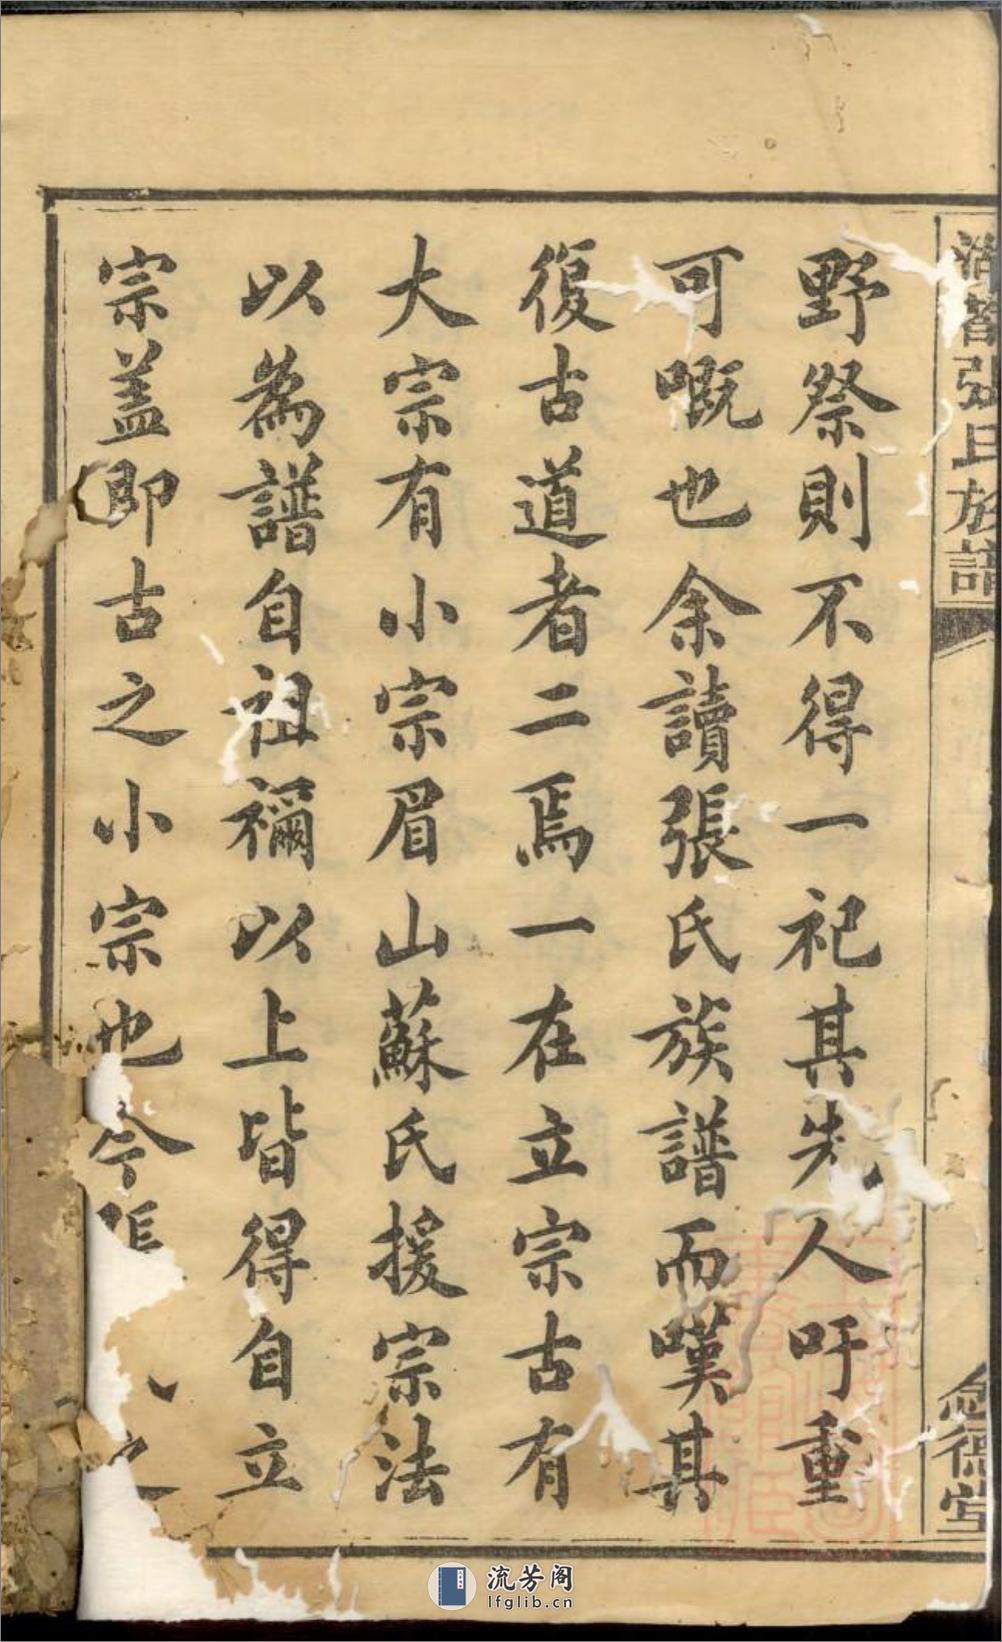 張氏族譜
德堂
野祭則不得一祀其先人吁重
可嘅也余讀張氏族譜而嘆其
復古道者二焉一在立宗古有
大宗有小宗眉山蘇氏援宗法
以為譜自祖禰以上皆得自立
宗盖即古之小宗也今張之
流芳阁
lfglib.cn